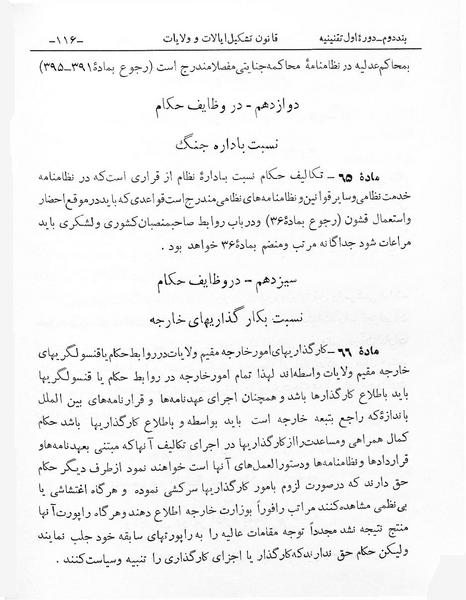 بنددوم_دورهٔ اول تقنینیه قانون تشکیل ایالات و ولایات -۱۱۶-
بمحاکم عدلیه در نظامنامهٔ محاکمه جنایتی مفصلا مندرج است (رجوع بمادهٔ ۳۹۱_۳۹۵)
دوازدهم - در وظایف حکام
نسبت باداره جنگ
مادهٔ ۶۵ - تکالیف حکام نسبت بادارهٔ نظام از قراری است که در نظامنامه
خدمت نظامی و سایر قوانین و نظامنامه های نظامی مندرج است قواعدی که باید در موقع احضار
واستعمال قشون (رجوع بمادهٔ ۳۶) ودرباب روابط صاحبمنصبان کشوری و لشگری باید
مراعات شود جداگانه مرتب ومنضم بمادهٔ ۳۶ خواهد بود .
سیزدهم - دروظایف حکام
نسبت بکار گذاریهای خارجه
مادهٔ ۶۶ - کارگذاریهای امورخارجه مقیم ولایات درروابط حکام باقنسولگریهای
خارجه مقیم ولایات واسطه‌اند لهذا تمام امورخارجه در روابط حکام با قنسولگریها
باید باطلاع کارگذارها باشد و همچنان اجرای عهدنامه‌ها و قرارنامه‌های بین الملل
باندازهٔ که راجع بتبعه خارجه است باید بواسطه و باطلاع کارگذاریها باشد حکام
کمال همراهی ومساعدت راازکارگذاریها در اجرای تکالیف آنهاکه مبتنی بعهدنامه‌هاو
قراردادها و نظامنامه‌ها ودستورالعمل‌های آنها است خواهند نمود ازطرف دیگر حکام
حق دارند که درصورت لزوم بامور کارگذاریها سرکشی نموده و هرگاه اغتشاشی یا
بی‌نظمی مشاهده کنند مراتب رافوراً بوزارت خارجه اطلاع دهند وهرگاه راپورت آنها
منتج نتیجه نشد مجدداً توجه مقامات عالیه را به راپورتهای سابقه خود جلب نمایند
ولیکن حکام حق ندارند که کارگذار یا اجزای کارگذاری را تنبیه وسیاست کنند .